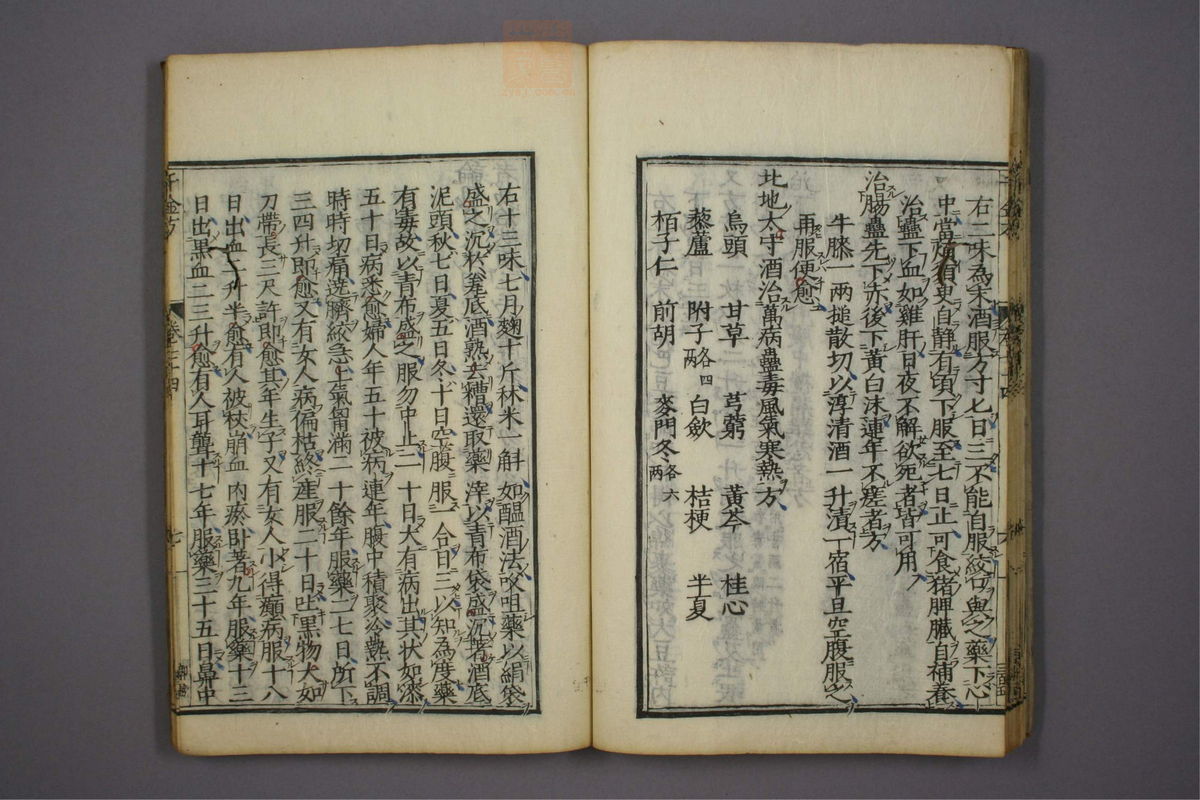 右三味為末酒服方寸匕日三不能自服絞口與之藥下心
中當煩須臾自静有頃下服至七日止可食猪脾臓自補養
治蠱下血如雞肝日夜不解欲死者皆可用
治腸蠱先下赤後下黄白沫連年不瘥者方
牛膝一兩搥散切以淳清酒一升漬一宿平旦空腹服之
再服便愈
北地太守酒治萬病蠱毒風氣寒熱方
烏頭 甘草 芎藭 黃芩 桂心
藜蘆 附子各四兩 白歛 桔梗 半夏
栢子仁 前胡 麥門冬各六兩
右十三味七月麴十斤秫米一斛如醖酒法㕮咀藥以絹袋
盛之沉於瓮底酒熟去糟還取藥滓以青布袋盛沉著酒底
泥頭秋七日夏五日冬十日空腹服一合日三以知為度藥
有毒故以青布盛之服勿中止二十日大有病出其状如漆
五十日病悉愈婦人年五十被病連年腹中積聚冷熱不調
時時切痛遶臍絞急上氣胷滿二十餘年服藥二七日所下
三四升即愈又有女人病偏枯絶産服二十日吐黒物大如
刀帶長三尺許即愈其年生子又有女人小得癲病服十八
日出血二升半愈有人被杖崩血肉瘀卧著九年服藥十三
日出黒血二三升愈有人耳聾十七年服藥三十五日鼻中
千金方
卷二十四